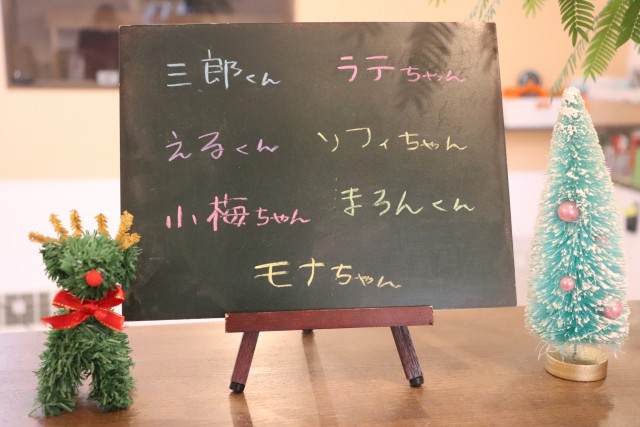 三郎くん ラテちゃん
えるくん ソフィちゃん
小梅ちゃん まろんくん
モナちゃん